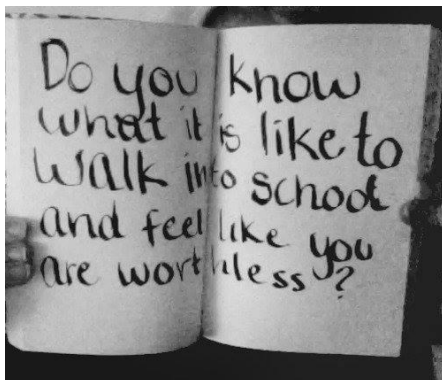 Do you know
what it is like to
Walk into school
and feel like you
are worthless?